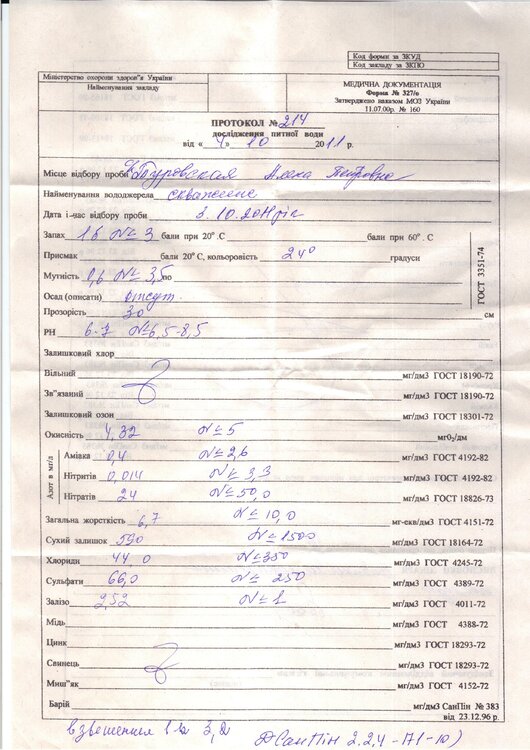 Код форми за ЗКУД
Код закладу за ЗКПО
Міністерство охорони здоров"я України
Найменування закладу
МЕДИЧНА ДОКУМЕНТАЦІЯ
Форма № 327/о
Затверджено наказом МОЗ України
11.07.00р. № 160
ПРОТОКОЛ № 214
дослідження питної води
від « 4 » 10 2011 р.
Місце відбору проби Петровна
Найменування вододжерела скважина
Дата і час відбору проби 3.10.2011 рік
Запах 1б N≤ 3 бали при 20° С бали при 60° . С
Присмак бали 20° С, кольоровість 24° градуси
Мутність 0,6 N≤ 3,5 по
ГОСТ 3351-74
Осад (описати) отсут
Прозорість 30 см
РН 6-7 N≤6,5-8,5
Залишковий хлор
Вільний мг/дм3 ГОСТ 18190-72
Зв"язаний мг/дм3 ГОСТ 18190-72
Залишковий озон ГОСТ 18301-72
Окисність 4,32 N≤5 мг0₂/дм
Азот в мг/л
Амівка 0,4 N≤2,6 мг/дм3 ГОСТ 4192-82
Нітритів 0,014 N≤ 3,3 мг/дм3 ГОСТ 4192-82
Нітратів 24 N≤50,0 мг/дм3 ГОСТ 18826-73
Загальна жорсткість 6,7 N≤ 10,0 мг-екв/дм3 ГОСТ 4151-72
Сухий залишок 590 N≤1500 мг/дм3 ГОСТ 18164-72
Хлориди 44,0 N≤350 мг/дм3 ГОСТ 4245-72
Сульфати 66,0 N≤ 250 мг/дм3 ГОСТ 4389-72
Залізо 2,52 N≤1 мг/дм3 ГОСТ 4011-72
Мідь мг/дм3 ГОСТ 4388-72
Цинк мг/дм3 ГОСТ 18293-72
Свинець мг/дм3 ГОСТ 18293-72
Миш"як мг/дм3 ГОСТ 4152-72
Барій мг/дм3 СанПін № 383
від 23.12.96 р.
3,2 ДСанПіН 2.2.4-171-10)